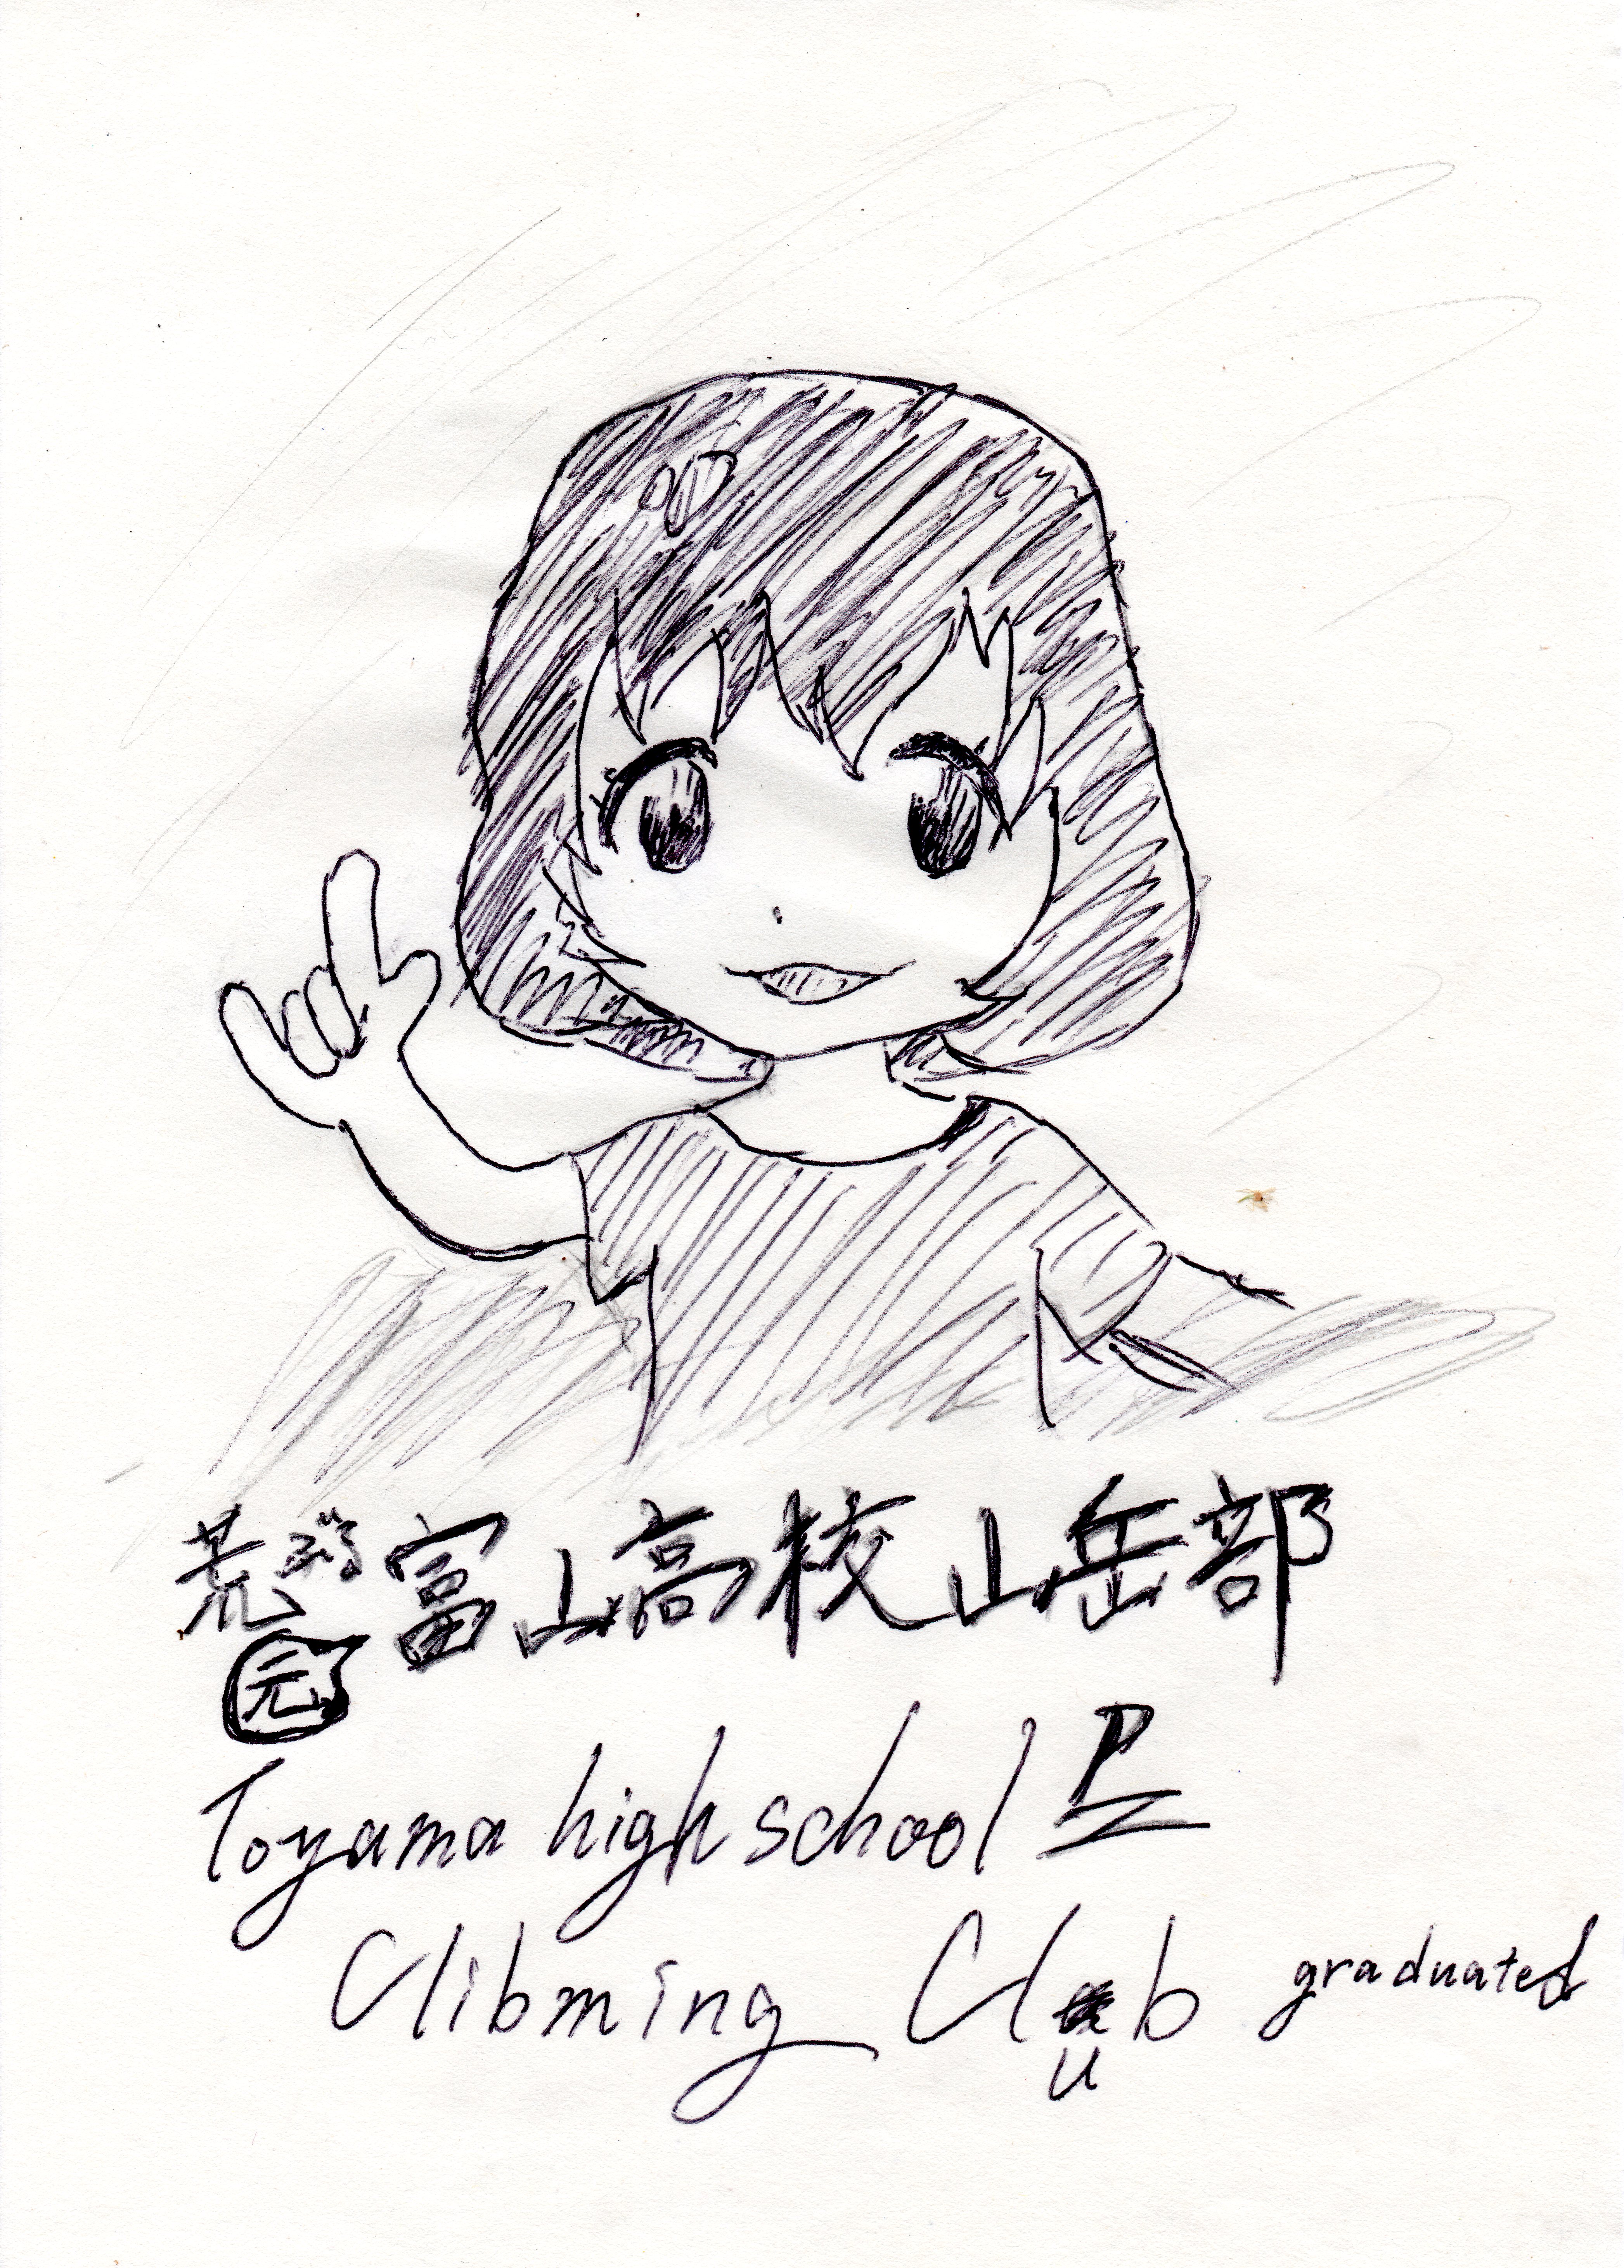 元
富山高校山岳部
Toyama high school
Clibming Club graduated